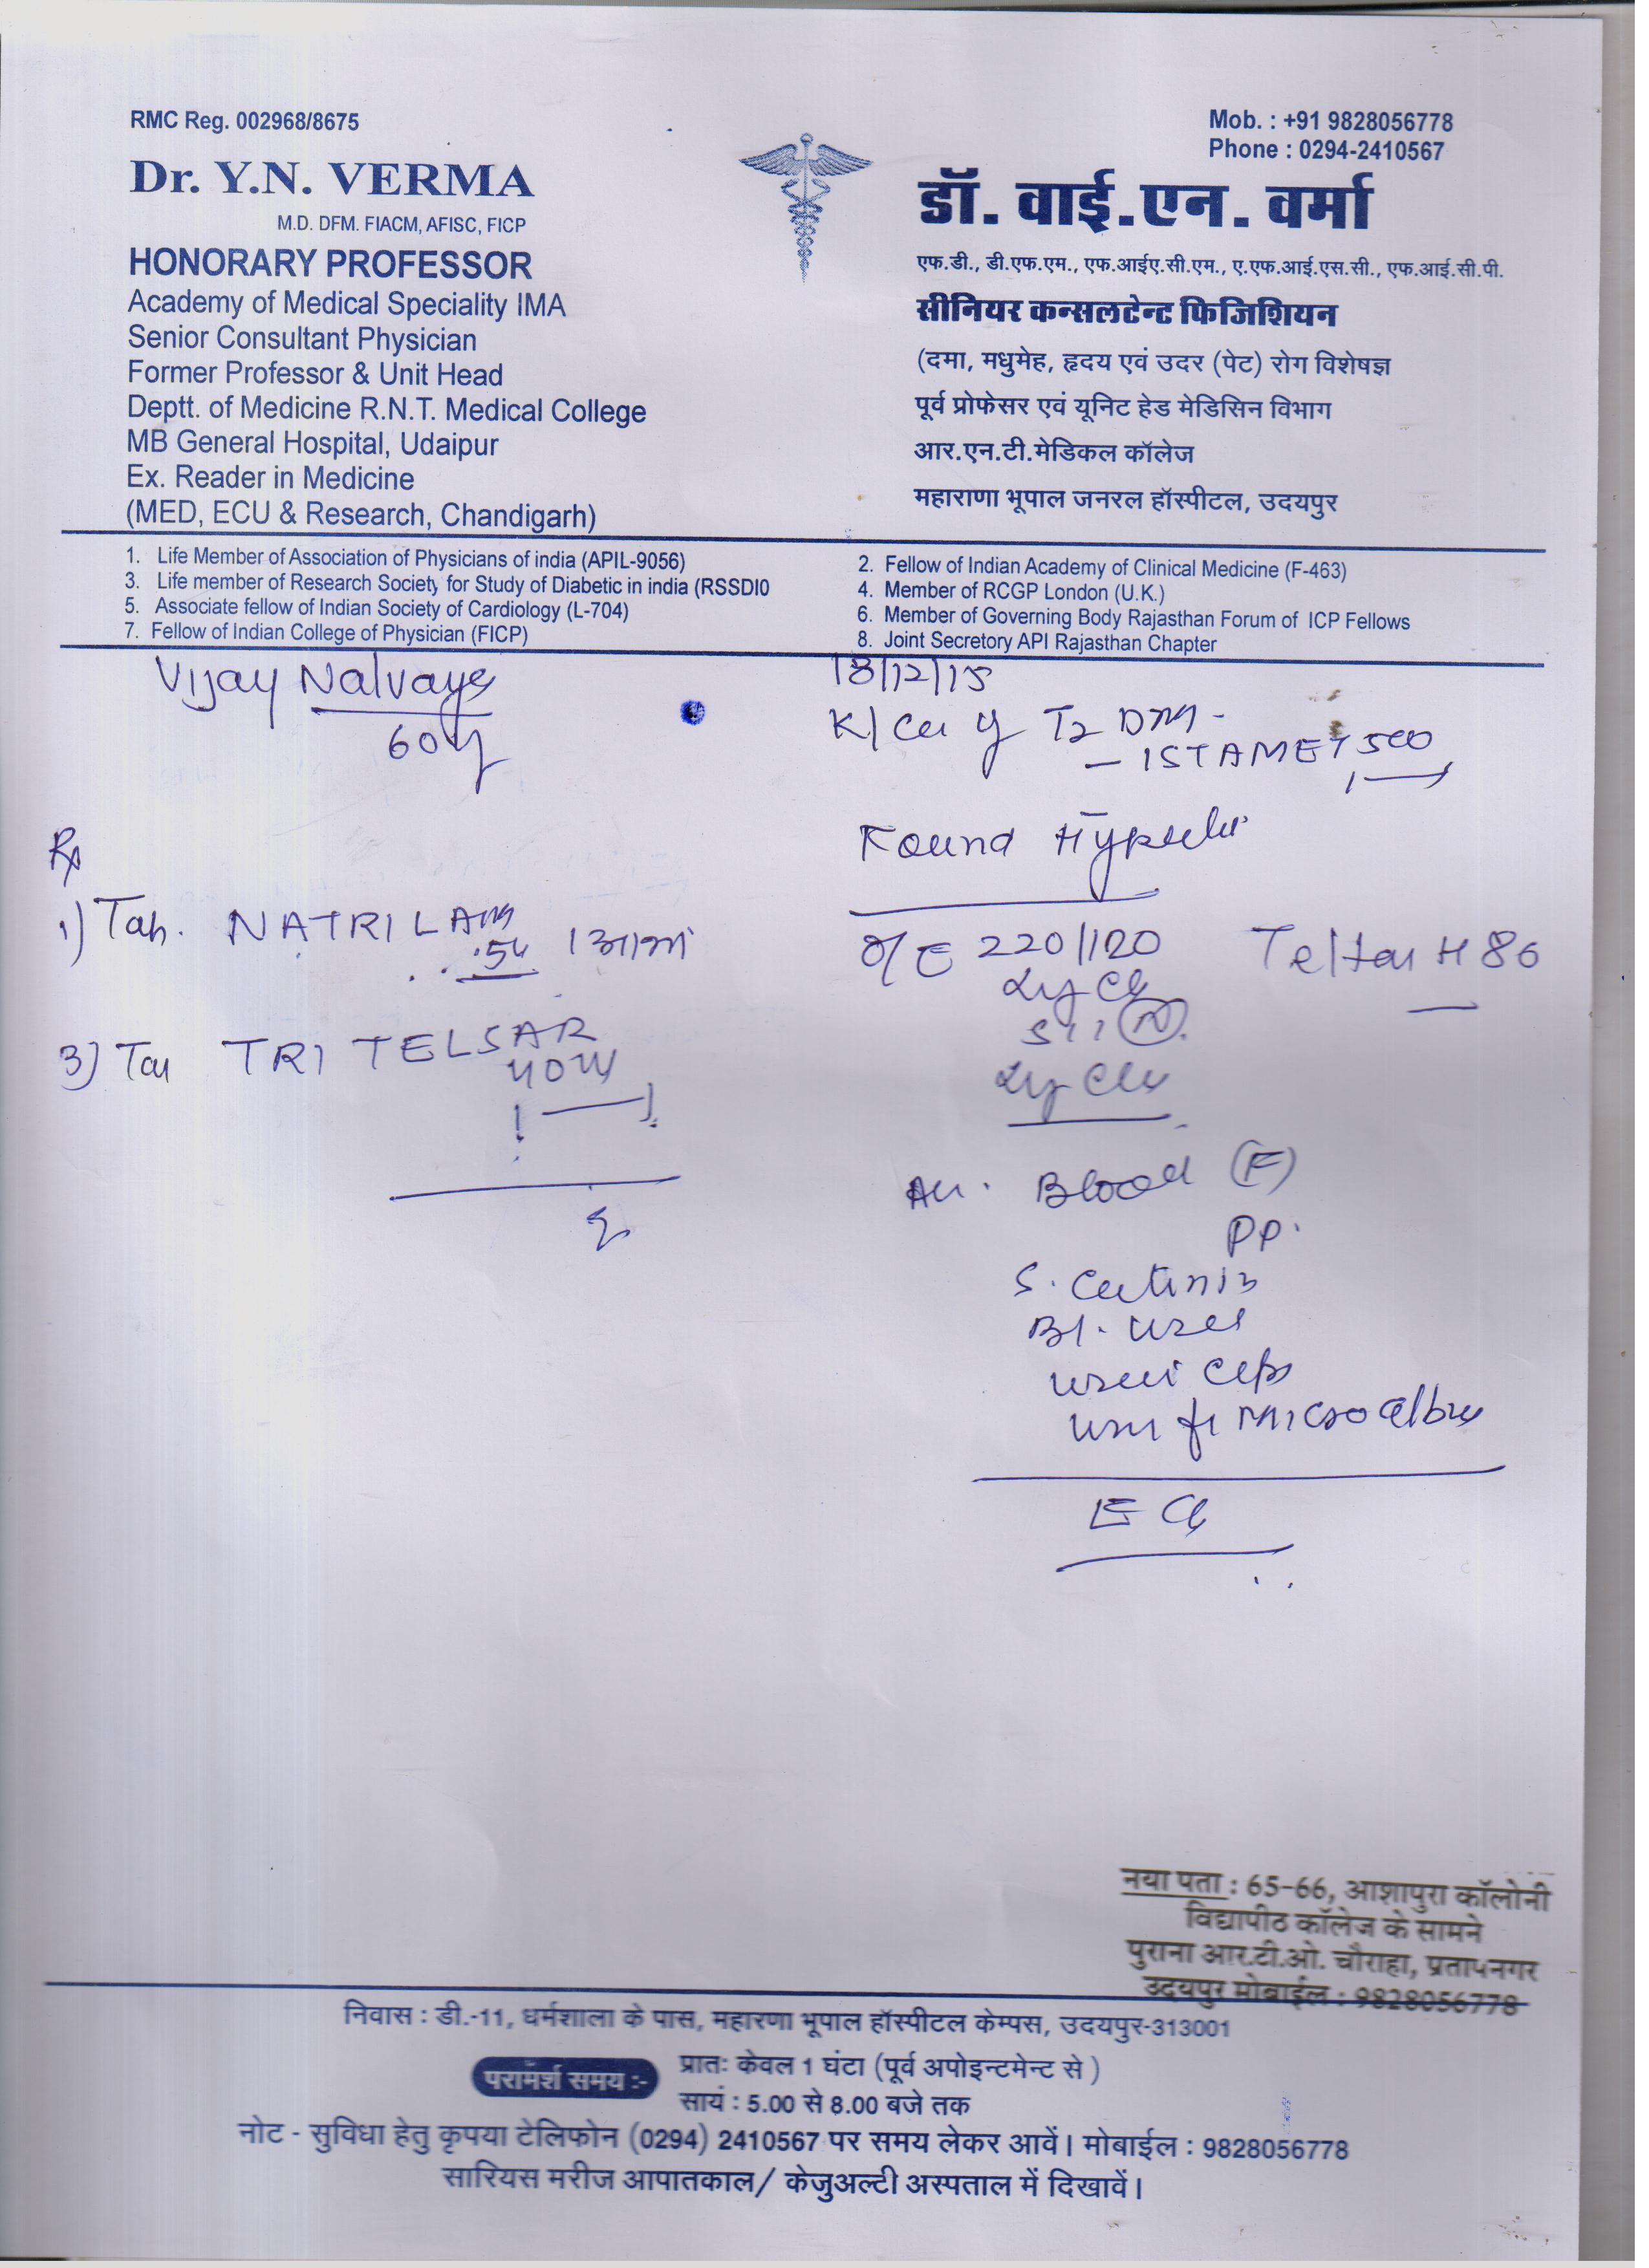 RMC Reg. 002968/8675
Dr. Y.N. VERMA
M.D. DFM. FIACM, AFISC, FICP
HONORARY PROFESSOR
Academy of Medical Speciality IMA
Senior Consultant Physician
Former Professor & Unit Head
Deptt. of Medicine R.N.T. Medical College
MB General Hospital, Udaipur
Ex. Reader in Medicine
(MED, ECU & Research, Chandigarh)
Mob. : +91 9828056778
Phone : 0294-2410567
डॉ. वाई.एन. वर्मा
एफ.डी., डी.एफ.एम., एफ.आईए.सी.एम., ए.एफ.आई.एस.सी., एफ.आई.सी.पी.
सीनियर कन्सलटेन्ट फिजिशियन
(दमा, मधुमेह, हृदय एवं उदर (पेट) रोग विशेषज्ञ
पूर्व प्रोफेसर एवं यूनिट हेड मेडिसिन विभाग
आर.एन.टी.मेडिकल कॉलेज
महाराणा भूपाल जनरल हॉस्पीटल, उदयपुर
1. Life Member of Association of Physicians of india (APIL-9056)
2. Fellow of Indian Academy of Clinical Medicine (F-463)
3. Life member of Research Society for Study of Diabetic in india (RSSDI0
4. Member of RCGP London (U.K.)
5. Associate fellow of Indian Society of Cardiology (L-704)
6. Member of Governing Body Rajasthan Forum of ICP Fellows
7. Fellow of Indian College of Physician (FICP)
8. Joint Secretory API Rajasthan Chapter
Vijay
60y
18/12/15
T2 DM -
- ISTAMET 500
Found
Rx
1) Tab. NATRILAM
3) TRI TELSAR
O/E 220/120
H 80
Blood (F)
PP.
S.
Bl.
नया पता : 65-66, आशापुरा कॉलोनी
विद्यापीठ कॉलेज के सामने
पुराना आर.टी.ओ. चौराहा, प्रतापनगर
उदयपुर मोबाईल : 9828056778
निवास : डी.-11, धर्मशाला के पास, महारणा भूपाल हॉस्पीटल केम्पस, उदयपुर-313001
परामर्श समय :-
प्रातः केवल 1 घंटा (पूर्व अपोइन्टमेन्ट से )
सायं : 5.00 से 8.00 बजे तक
नोट - सुविधा हेतु कृपया टेलिफोन (0294) 2410567 पर समय लेकर आवें। मोबाईल : 9828056778
सारियस मरीज आपातकाल/ केजुअल्टी अस्पताल में दिखावें।